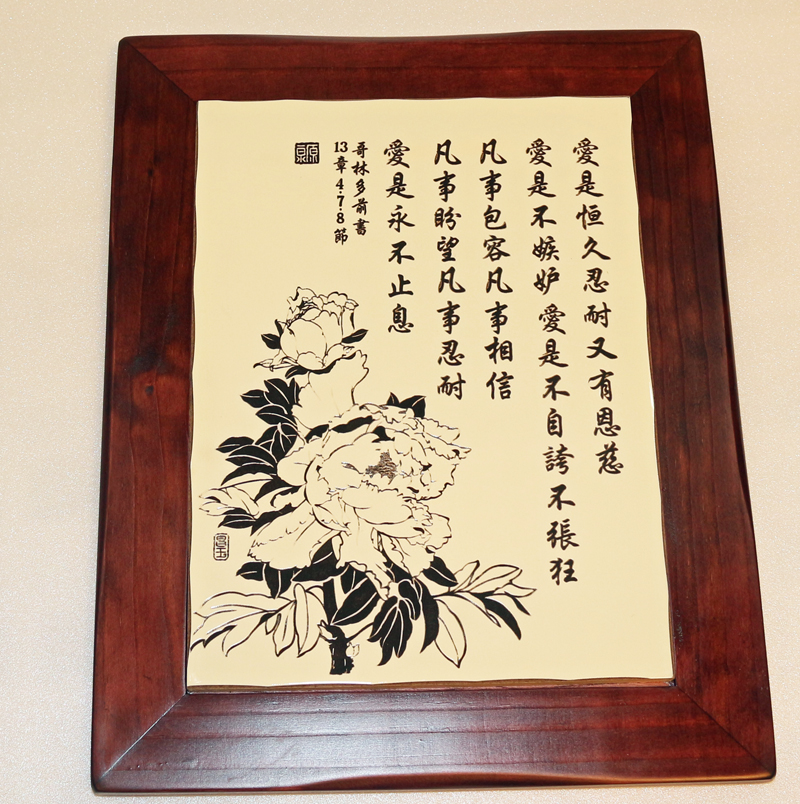 愛是恒久忍耐又有恩慈
愛是不嫉妒愛是不自誇不張狂
凡事包容凡事相信
凡事盼望凡事忍耐
愛是永不止息
哥林多前書
13章4·7·8節